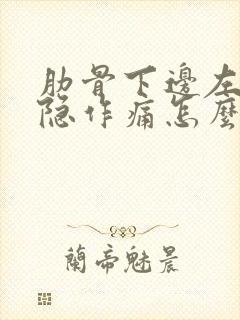 肋骨下邊左
隐作痛怎麼
蘭帝魅晨